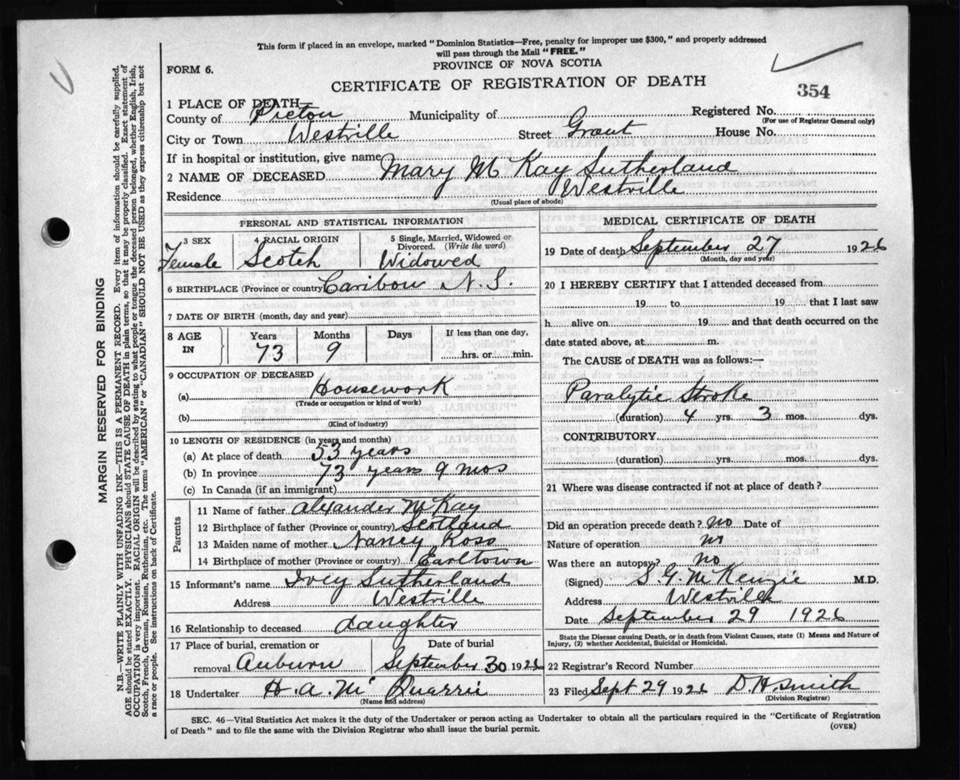 This form if placed in an envelope, marked "Dominion Statistics—Free, penalty for improper use $300," and properly addressed
will pass through the Mail "FREE."
PROVINCE OF NOVA SCOTIA
FORM 6.
CERTIFICATE OF REGISTRATION OF DEATH
354
1 PLACE OF DEATH
County of Pictou Municipality of Registered No.
(For use of Registrar General only)
City or Town Westville Street Grant House No.
If in hospital or institution, give name
2 NAME OF DECEASED Mary McKay Sutherland
Residence Westville
(Usual place of abode)
PERSONAL AND STATISTICAL INFORMATION
3 SEX 4 RACIAL ORIGIN 5 Single, Married, Widowed or
Divorced. (Write the word)
Female Scotch Widowed
6 BIRTHPLACE (Province or country) Caribou N.S.
7 DATE OF BIRTH (month, day and year)
8 AGE IN Years Months Days If less than one day,
73 9 hrs. or min.
9 OCCUPATION OF DECEASED
(a) Housework
(Trade or occupation or kind of work)
(b)
(Kind of industry)
10 LENGTH OF RESIDENCE (in years and months)
(a) At place of death 53 years
(b) In province 73 years 9 mos
(c) In Canada (if an immigrant)
Parents
11 Name of father Alexander McKay
12 Birthplace of father (Province or country) Scotland
13 Maiden name of mother Nancy Ross
14 Birthplace of mother (Province or country) Earltown
15 Informant's name Ivey Sutherland
Address Westville
16 Relationship to deceased daughter
17 Place of burial, cremation or Date of burial
removal Auburn September 30 1926
18 Undertaker H. A. McQuarrie
(Name and address)
MEDICAL CERTIFICATE OF DEATH
19 Date of death September 27 1926
(Month, day and year)
20 I HEREBY CERTIFY that I attended deceased from
19 to 19 that I last saw
h alive on 19 and that death occurred on the
date stated above, at m.
The CAUSE of DEATH was as follows:—
Paralytic Stroke
(duration) 4 yrs. 3 mos. dys.
CONTRIBUTORY
(duration) yrs. mos. dys.
21 Where was disease contracted if not at place of death?
Did an operation precede death? no Date of
Nature of operation no
Was there an autopsy? no
(Signed) S. G. McKenzie M.D.
Address Westville
Date September 29 1926
State the Disease causing Death, or in death from Violent Causes, state (1) Means and Nature of
Injury, (2) whether Accidental, Suicidal or Homicidal.
22 Registrar's Record Number
23 Filed Sept 29 1926 D H Smith
(Division Registrar)
SEC. 46—Vital Statistics Act makes it the duty of the Undertaker or person acting as Undertaker to obtain all the particulars required in the "Certificate of Registration
of Death" and to file the same with the Division Registrar who shall issue the burial permit.
(OVER)
MARGIN RESERVED FOR BINDING
N.B.—WRITE PLAINLY WITH UNFADING INK—THIS IS A PERMANENT RECORD. Every item of information should be carefully supplied.
AGE should be stated EXACTLY. PHYSICIANS should STATE CAUSE OF DEATH in plain terms, so that it may be properly classified. Exact statement of
OCCUPATION is very important. RACIAL ORIGIN will be described by stating to what people or tongue the deceased person belonged, whether English, Irish,
Scotch, French, German, Russian, Ruthenian, etc. The terms "AMERICAN" or "CANADIAN" SHOULD NOT BE USED as they express citizenship but not
a race or people. See instructions on back of Certificate.